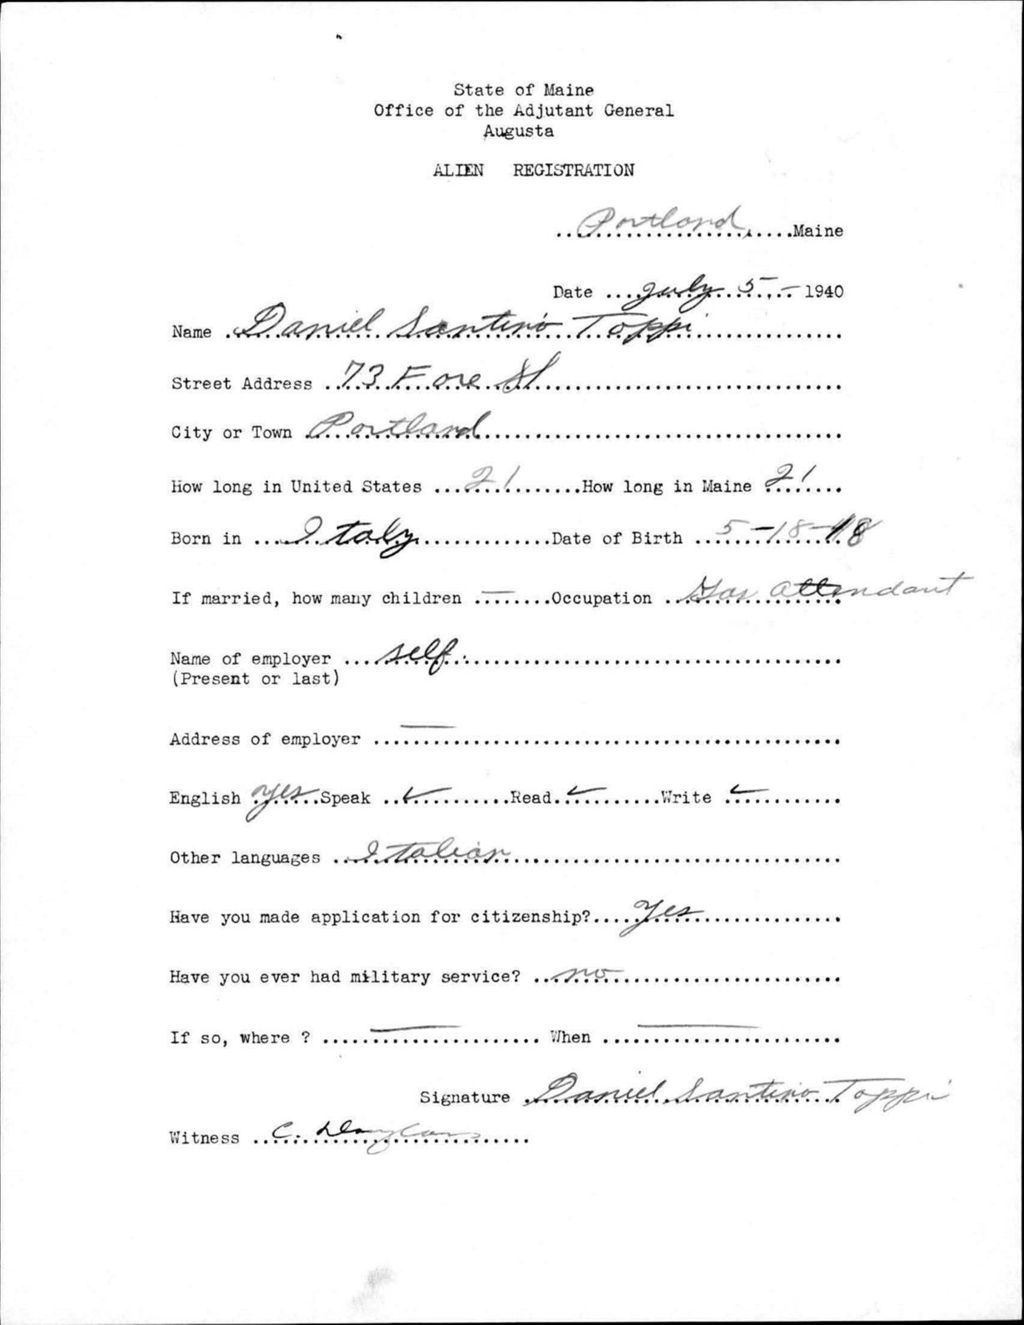 State of Maine
Office of the Adjutant General
Augusta
ALIEN REGISTRATION
Portland, Maine
Date July 5, - 1940
Name Daniel Santino Toppi
Street Address 73 Fore St
City or Town Portland
How long in United States 21 How long in Maine 21
Born in Italy Date of Birth 5-18-18
If married, how many children — Occupation Gas Attendant
Name of employer self.
(Present or last)
Address of employer —
English yes Speak ✓ Read ✓ Write ✓
Other languages Italian
Have you made application for citizenship? Yes
Have you ever had military service? no
If so, where ? — When —
Signature Daniel Santino Toppi
Witness C.